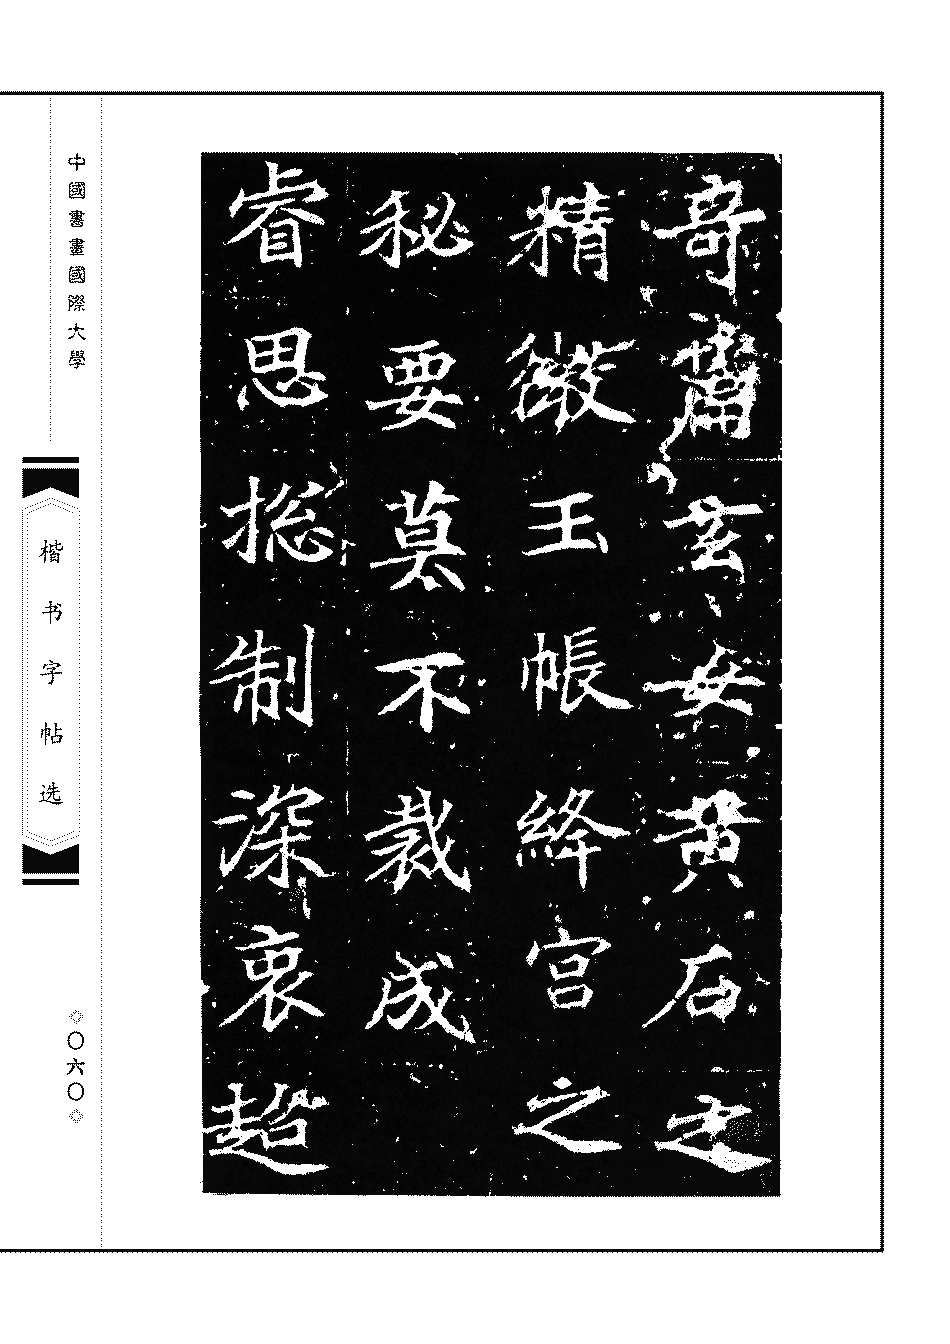 奇齋玄妾黄石之
精微玉帳絳宫之
秘要莫不裁成
睿思揔制深衷超
中國書畫國際大學
楷书字帖选
〇六〇